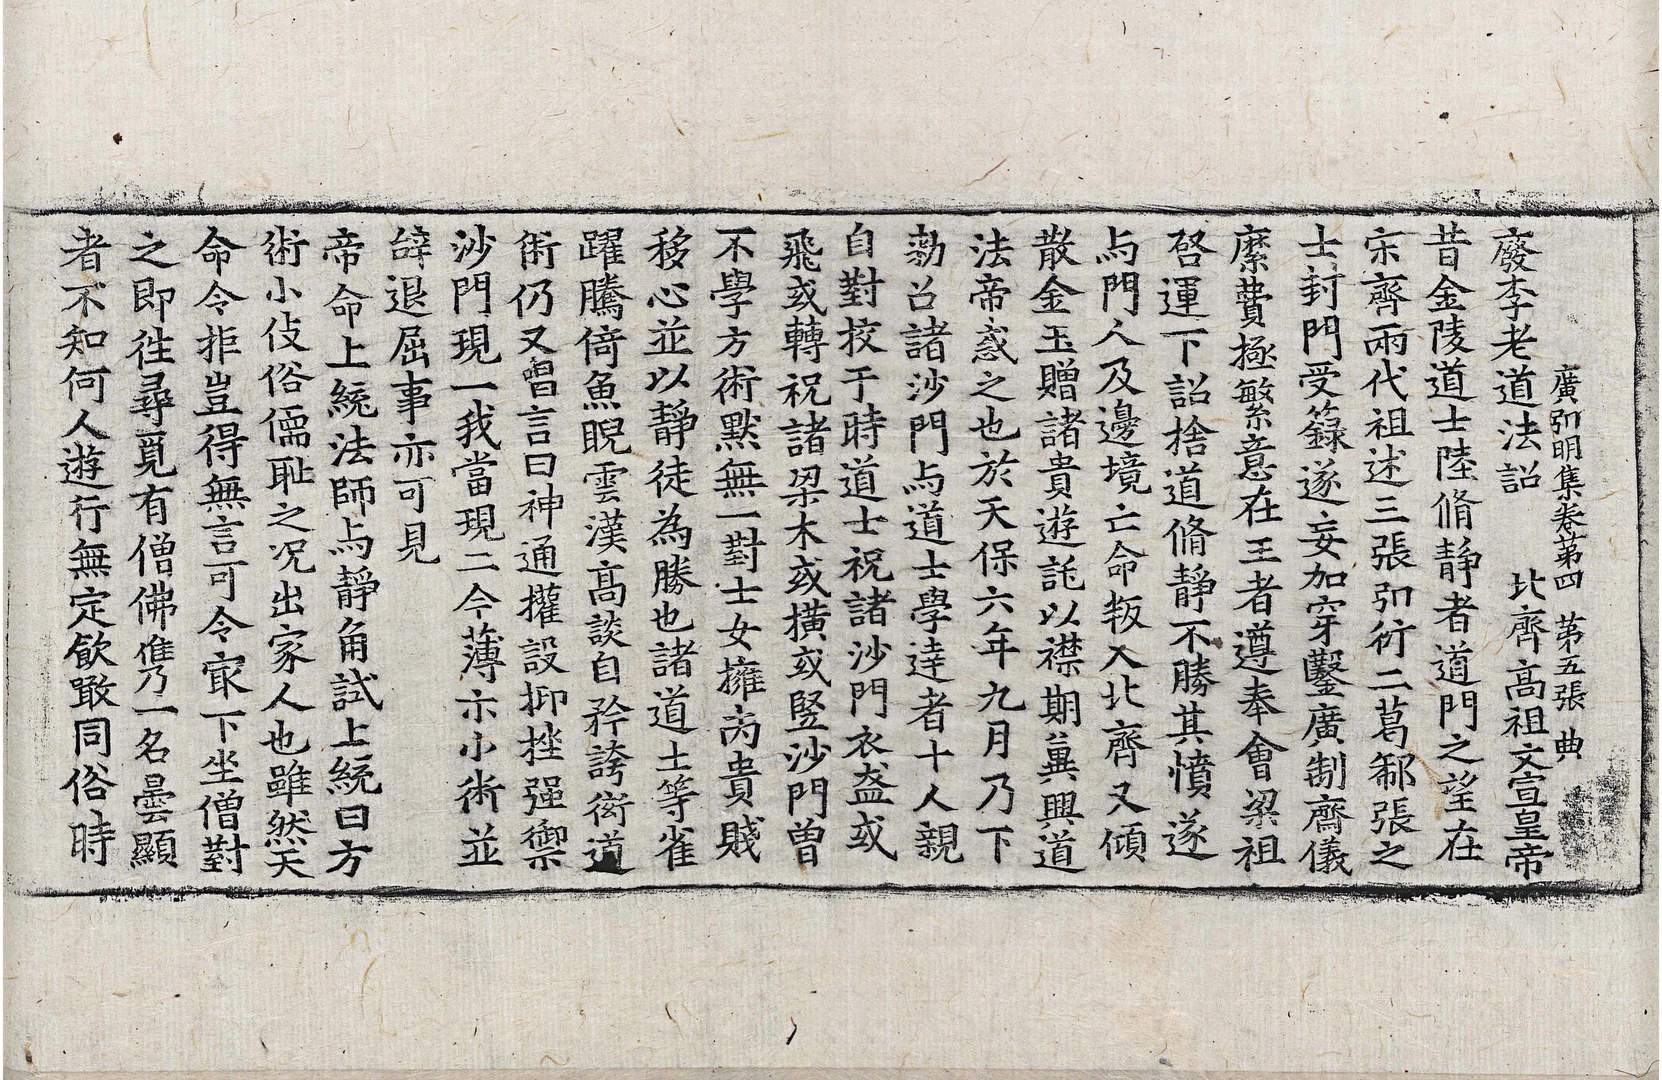 廣弘明集卷第四　第五張　典
廢李老道法詔　北齊高祖文宣皇帝
昔金陵道士陸脩靜者道門之望在
宋齊兩代祖述三張弘衍二葛郗張之
士封門受籙遂妄加穿鑿廣制齋儀
縻費極繁意在王者遵奉會梁祖
啓運下詔捨道脩靜不勝其憤遂
与門人及邊境亡命叛入北齊又傾
散金玉贈諸貴遊託以襟期冀興道
法帝惑之也於天保六年九月乃下
勑召諸沙門与道士學達者十人親
自對挍于時道士祝諸沙門衣盋或
飛或轉祝諸梁木或橫或竪沙門曽
不學方術默無一對士女擁內貴賤
移心並以靜徒為勝也諸道士等雀
躍騰倚魚睨雲漢高談自矜誇衒道
術仍又唱言曰神通權設抑挫强禦
沙門現一我當現二今薄示小術並
辤退屈事亦可見
帝命上統法師与靜角試上統曰方
術小伎俗儒耻之况出家人也雖然天
命令拒豈得無言可令㝡下坐僧對
之即徃尋覓有僧佛儁乃一名曇顯
者不知何人遊行無定飮噉同俗時